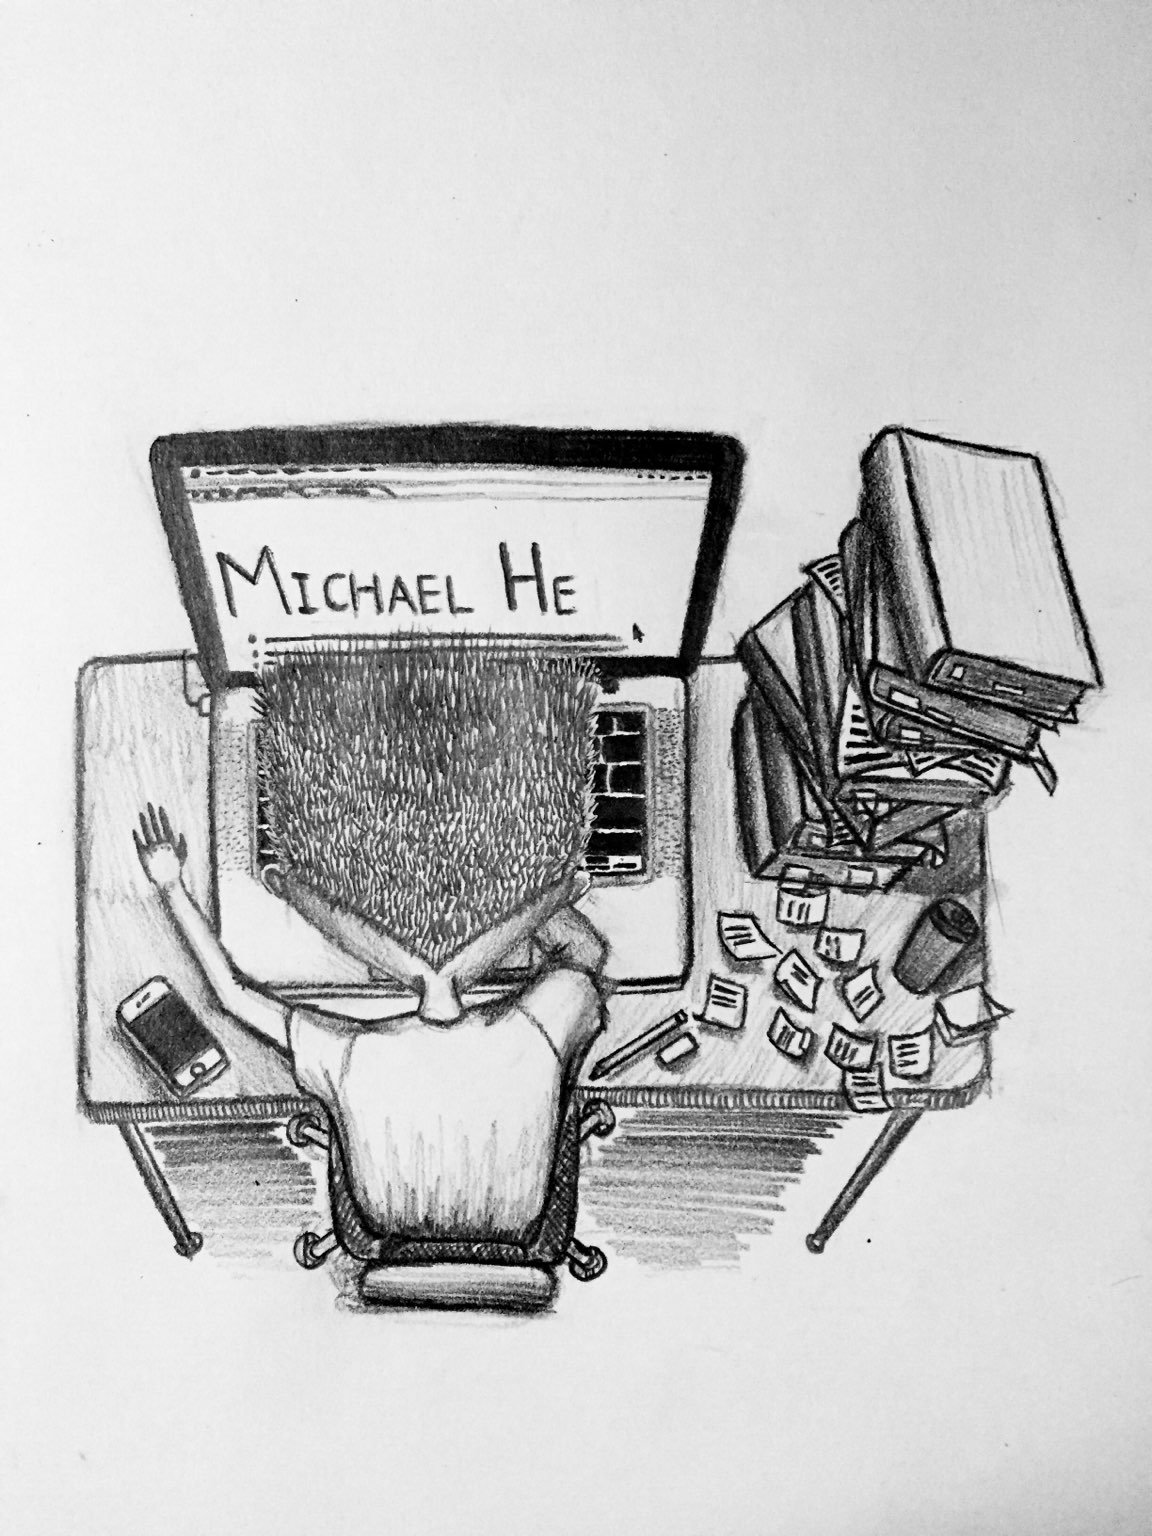 MICHAEL HE